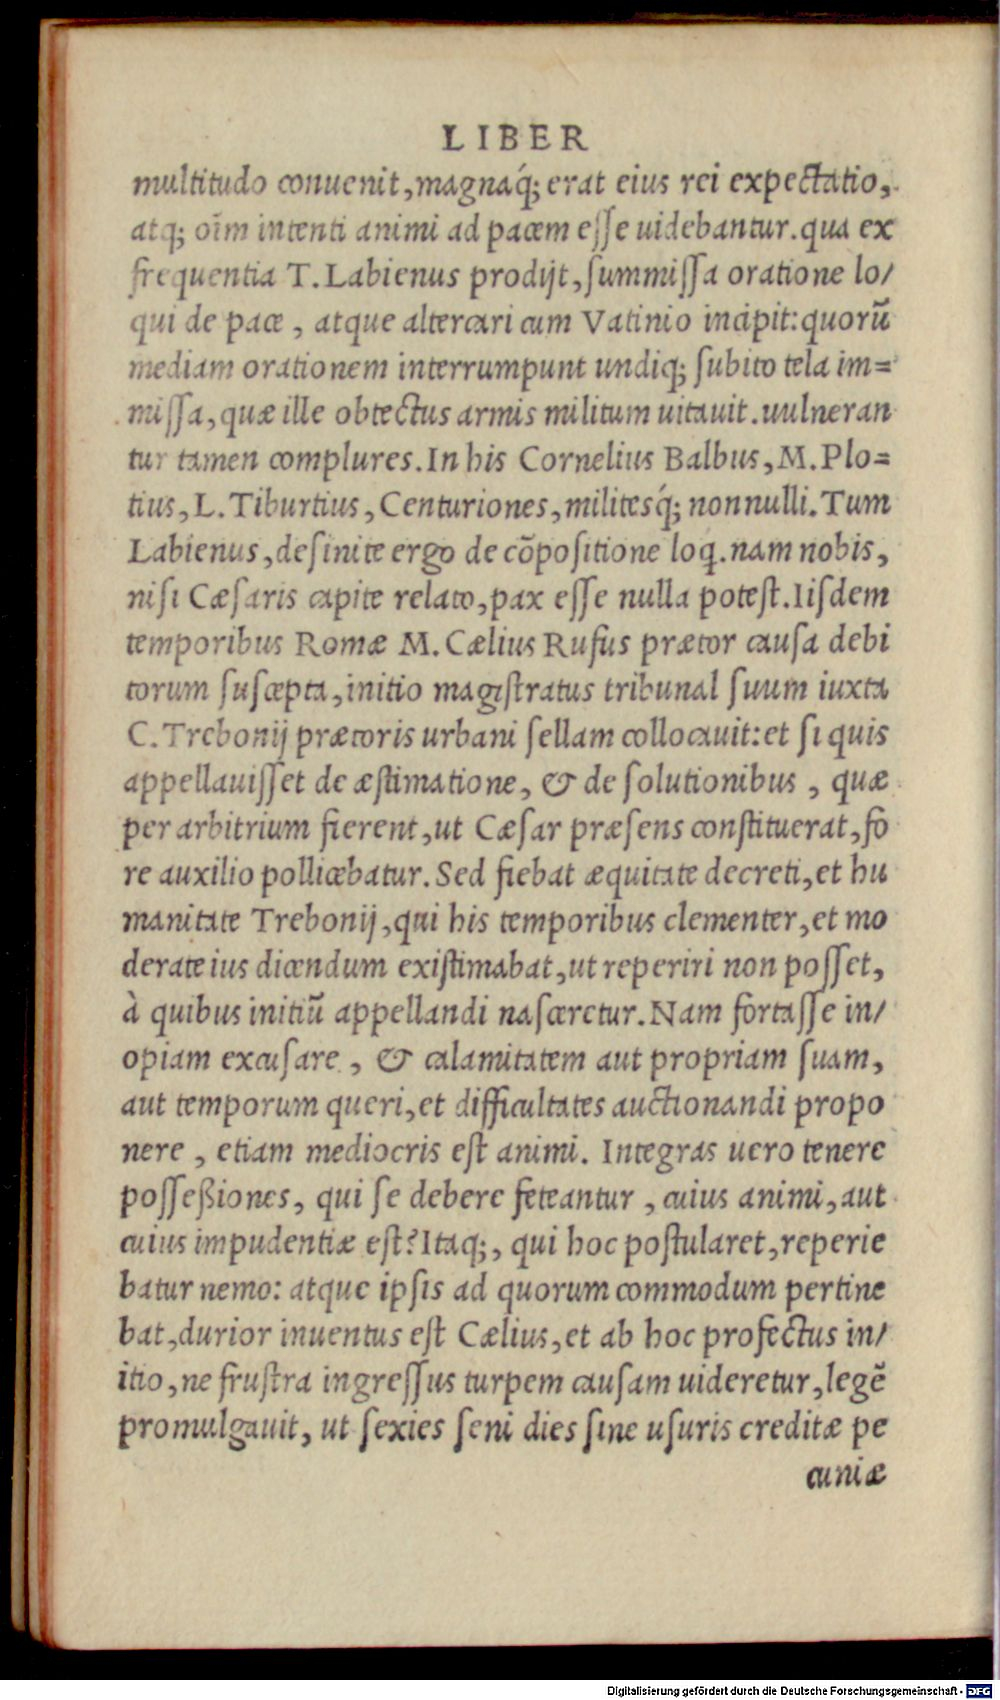 LIBER
multitudo conuenit, magnaq́; erat eius rei expectatio,
atq; oīm intenti animi ad pacem esse uidebantur. qua ex
frequentia T. Labienus prodijt, summissa oratione lo/
qui de pace, atque altercari cum Vatinio incipit: quorū
mediam orationem interrumpunt undiq; subito tela im=
missa, quæ ille obtectus armis militum uitauit. uulneran
tur tamen complures. In his Cornelius Balbus, M. Plo=
tius, L. Tiburtius, Centuriones, militesq́; nonnulli. Tum
Labienus, desinite ergo de cōpositione loq. nam nobis,
nisi Cæsaris capite relato, pax esse nulla potest. Iisdem
temporibus Romæ M. Cælius Rufus prætor causa debi
torum suscepta, initio magistratus tribunal suum iuxta
C. Trebonij prætoris urbani sellam collocauit: et si quis
appellauisset de æstimatione, & de solutionibus, quæ
per arbitrium fierent, ut Cæsar præsens constituerat, fo
re auxilio pollicebatur. Sed fiebat æquitate decreti, et hu
manitate Trebonij, qui his temporibus clementer, et mo
derate ius dicendum existimabat, ut reperiri non posset,
à quibus initiū appellandi nasceretur. Nam fortasse in/
opiam excusare, & calamitatem aut propriam suam,
aut temporum queri, et difficultates auctionandi propo
nere, etiam mediocris est animi. Integras uero tenere
posseßiones, qui se debere feteantur, cuius animi, aut
cuius impudentiæ est? Itaq;, qui hoc postularet, reperie
batur nemo: atque ipsis ad quorum commodum pertine
bat, durior inuentus est Cælius, et ab hoc profectus in/
itio, ne frustra ingressus turpem causam uideretur, legē
promulgauit, ut sexies seni dies sine usuris creditæ pe
cuniæ
Digitalisierung gefördert durch die Deutsche Forschungsgemeinschaft - DFG